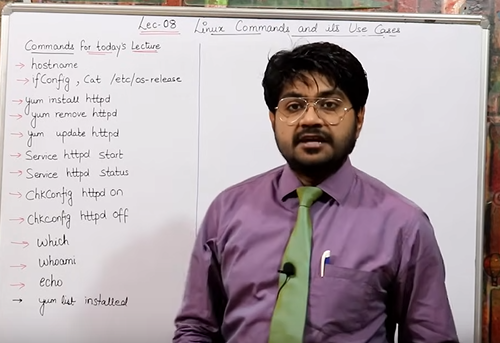 Lec-08 Linux Commands and its Use Cases
Commands for today's Lecture
→ hostname
→ ifConfig, Cat /etc/os-release
→ yum install httpd
→ yum remove httpd
→ yum update httpd
→ Service httpd start
→ Service httpd status
→ ChkConfig httpd on
→ Chkconfig httpd off
→ which
→ whoami
→ echo
→ yum list installed